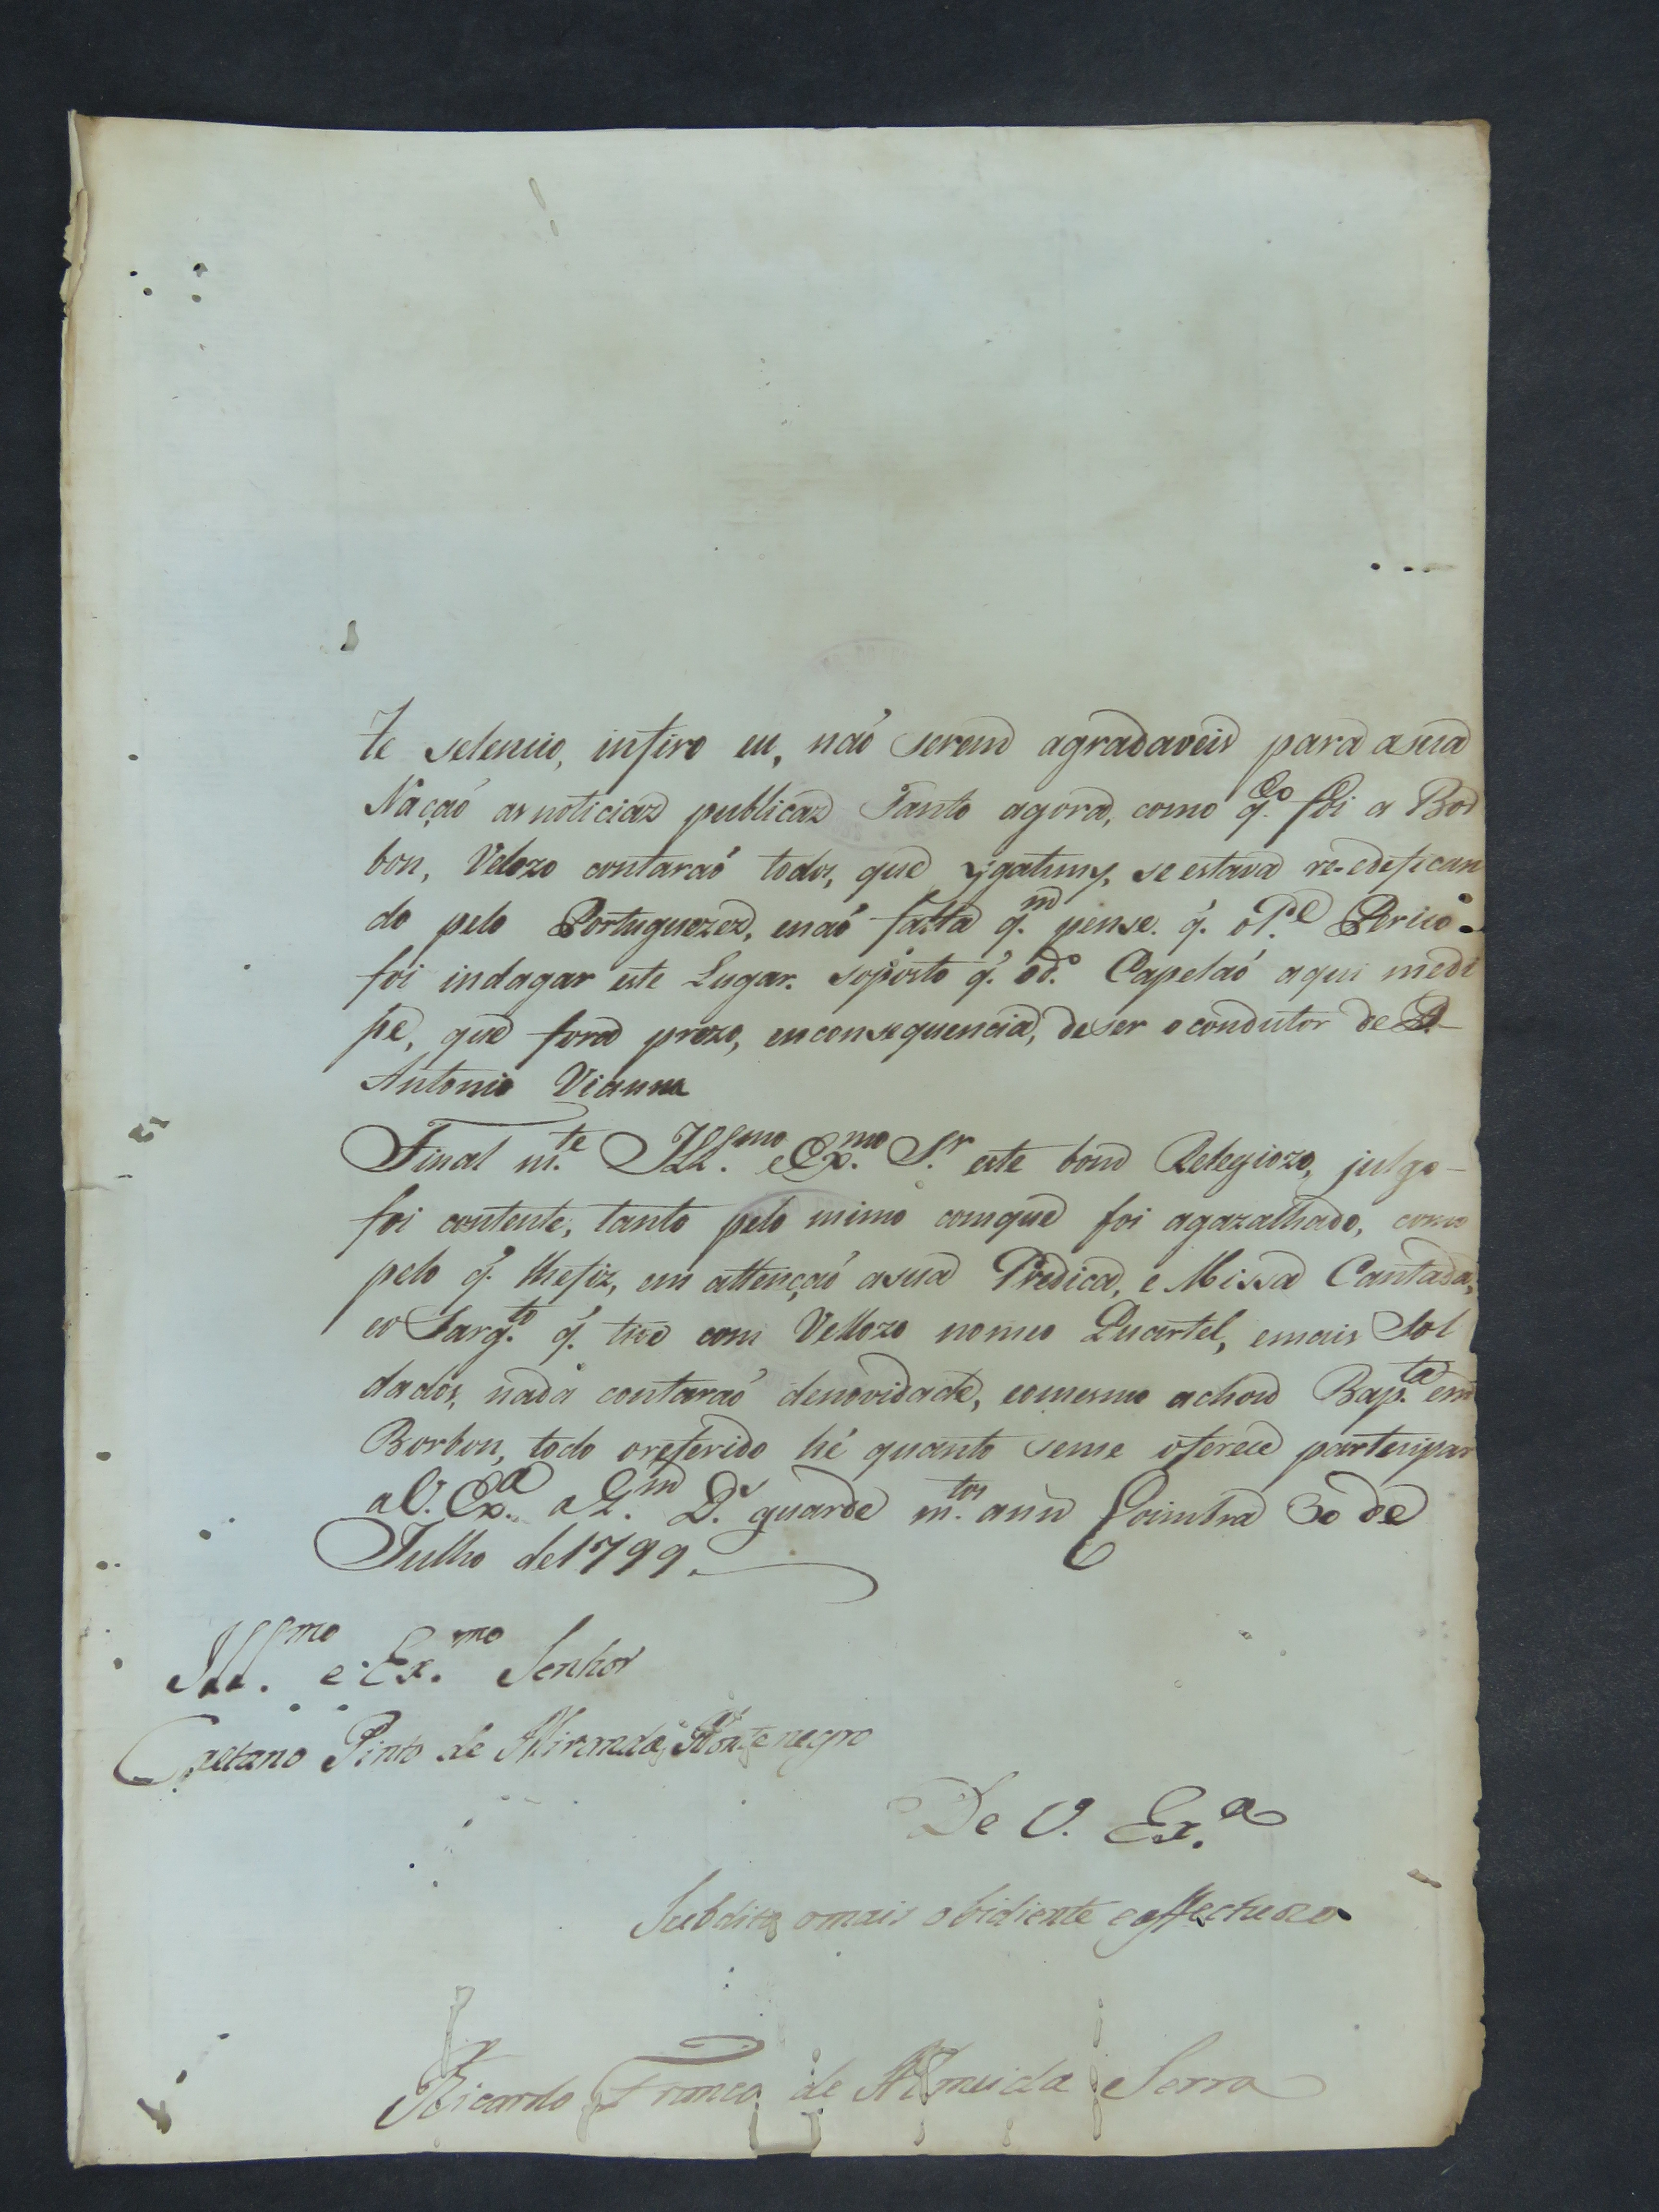 te selencio, infiro eu, naó serem agradaveis para a sua
Naçaó as noticias publicas Tanto agora, como q.do foi a Bor
bon, Velozo contaraó todos, que ygatimy, se estava re-edefican
do pelo Portuguezes, enaó falta q.m pense. q. o P.e Perico
foi indagar este Lugar. soposto q. o d.o Capelaó aqui medi
se, que fora prezo, em consequencia, de ser o condutor de D.
Antonio Vianna
Final m.te Ill.mo e Ex.mo S.r este bom Relegiozo, julgo
foi contente, tanto pelo mimo comque foi agazalhado, como
pelo q. lhefiz, em attençaó a sua Predica, e Missa Cantada,
eo Sarg.to q. tive com Vellozo nomeo Quartel, emais Sol
dados, nada contaraó denovidade, eomesmo achou Bap.ta em
Borbon, todo oreferido hé quanto seme oferece partesipar
a V. Ex.a a Q.m D.s guarde m.tos ann Coimbra 30 de
Julho de 1799.
Ill.mo e Ex.mo Senhor
Caetano Pinto de Miranda Montenegro
De V. Ex.a
Subdito omais obidiente e affectuozo
Ricardo Franco de Almeida Serra